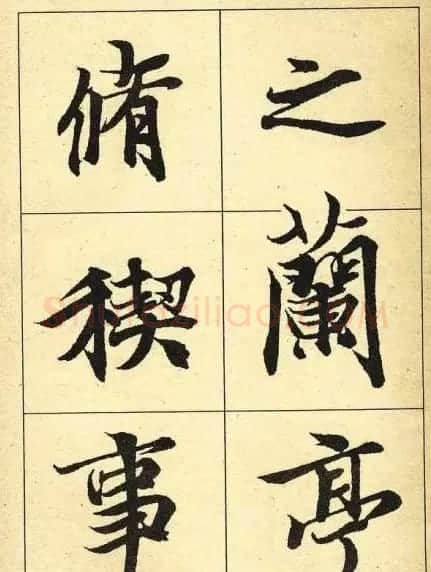 之蘭亭
脩稧事
shufaziliao.com